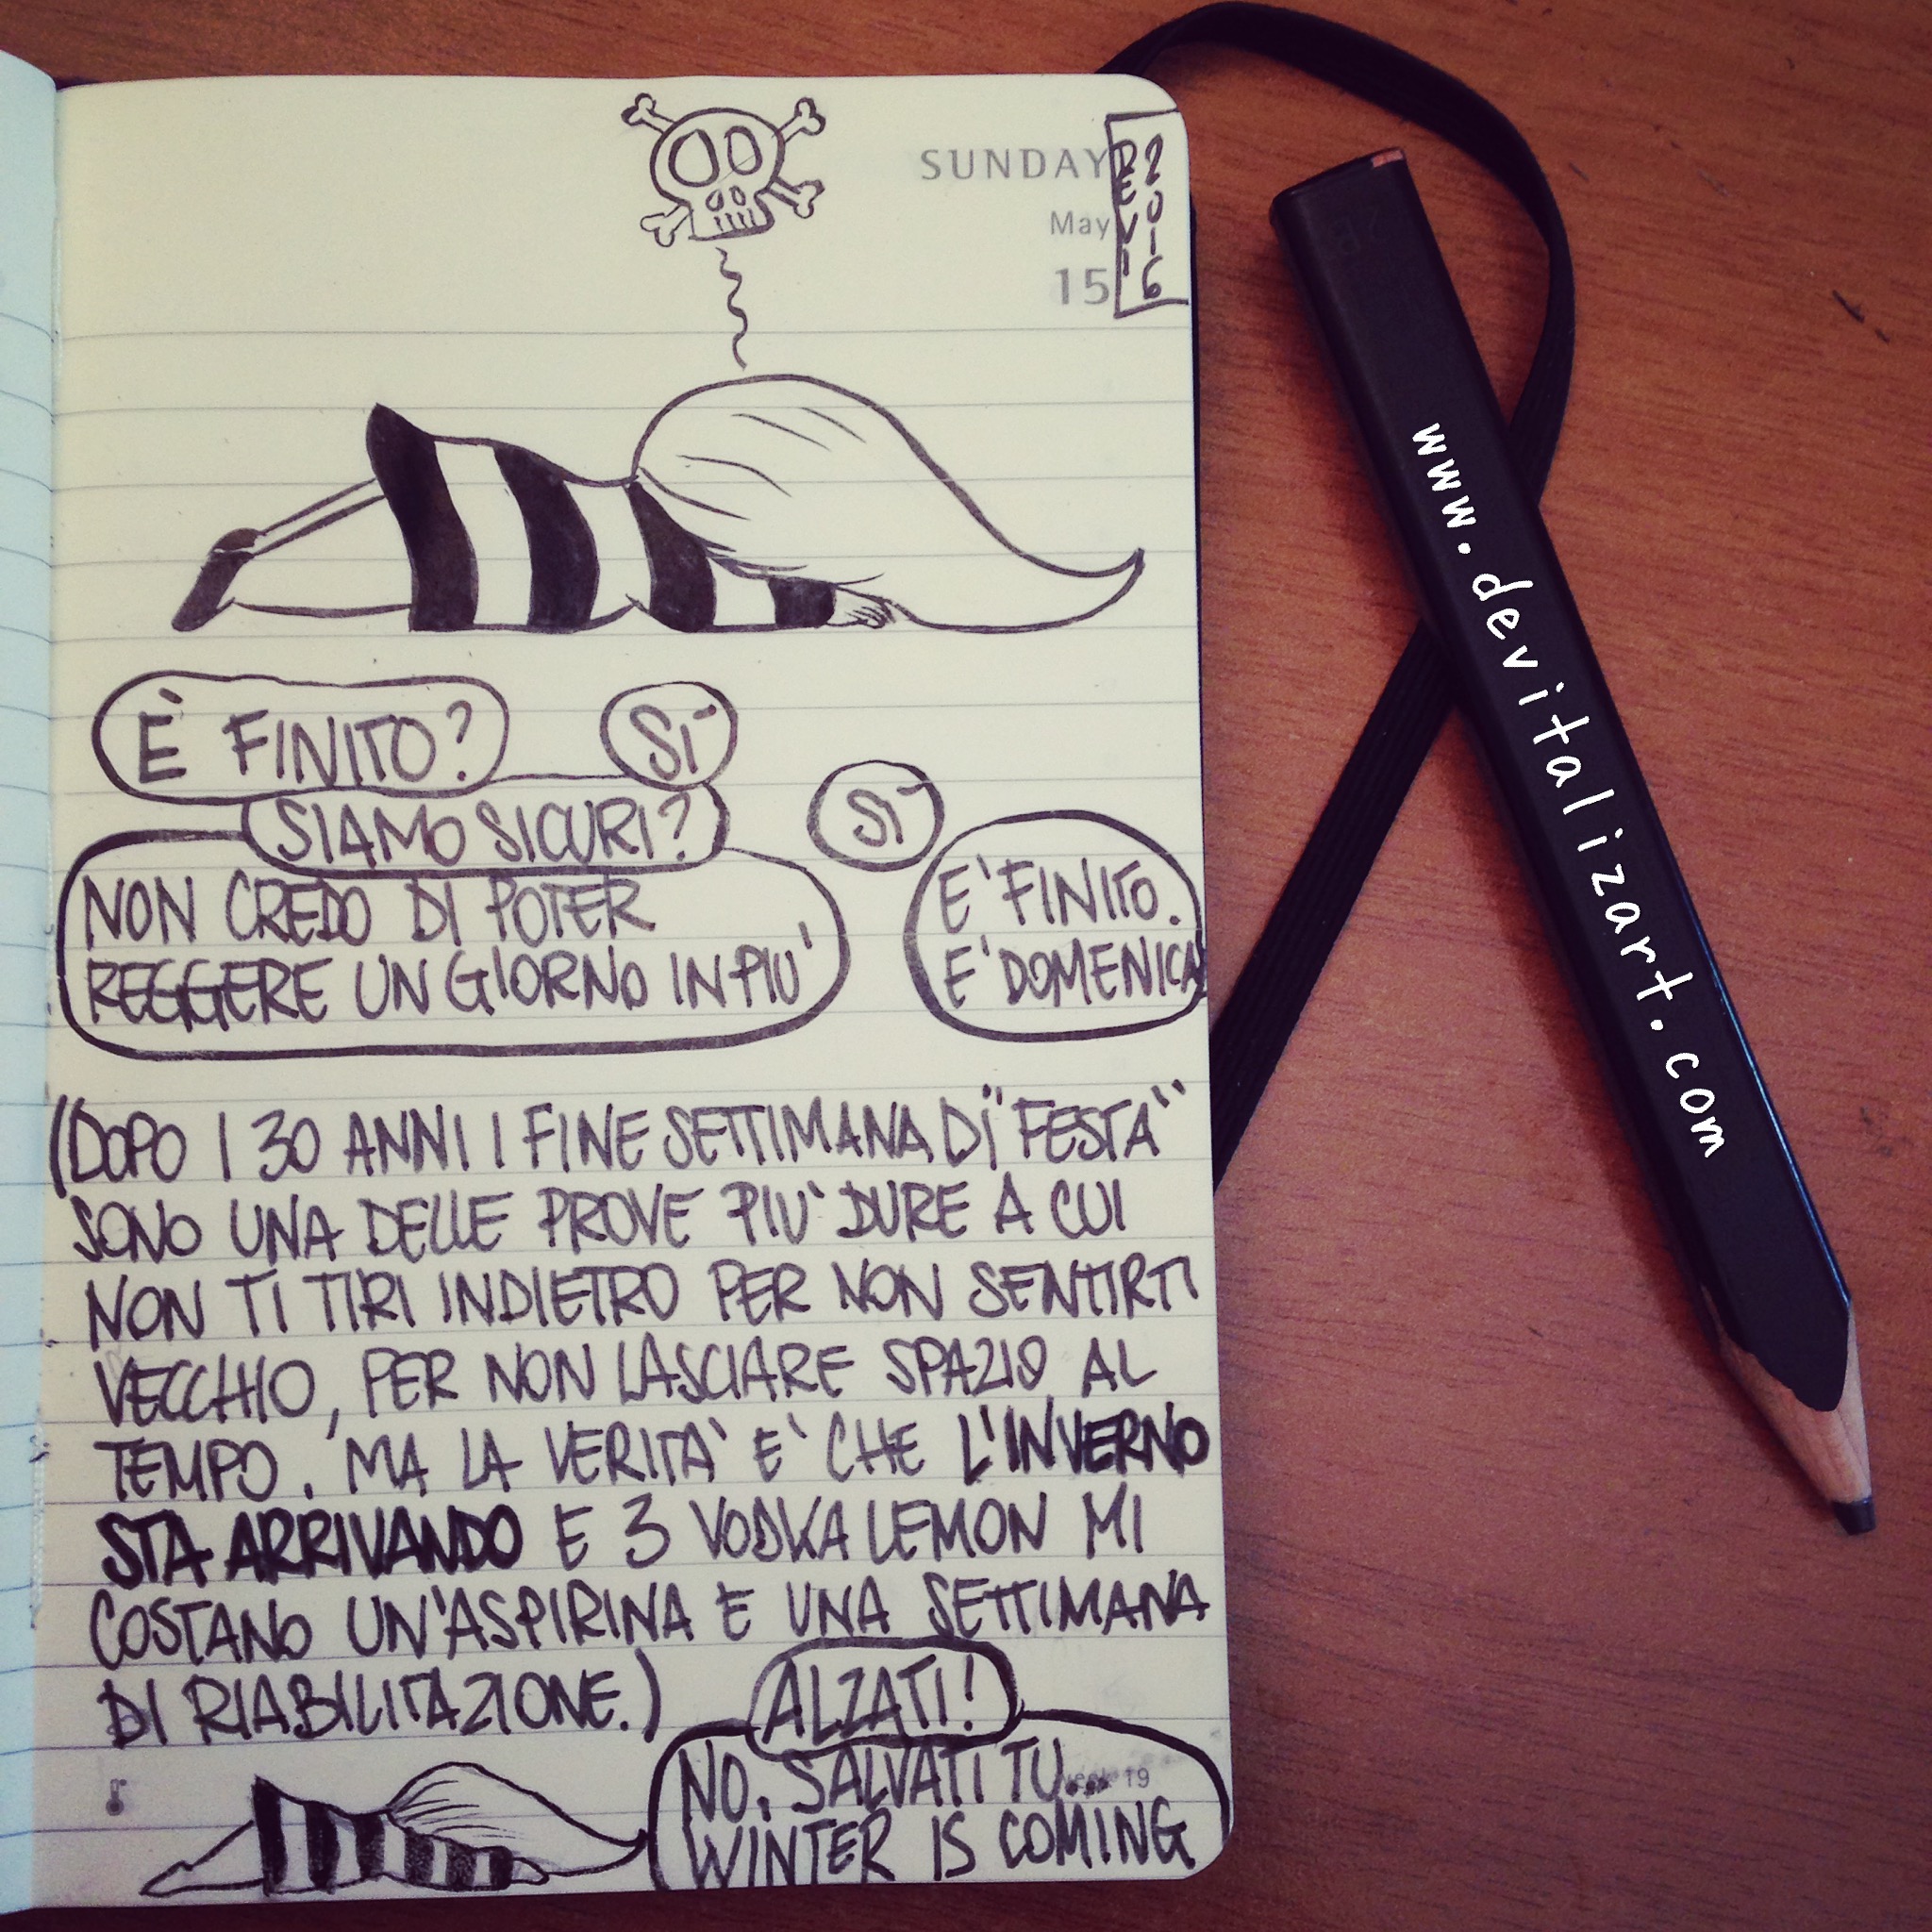 SUNDAY
May
15
DEVI
2016
È FINITO?
SÌ
SIAMO SICURI?
SÌ
NON CREDO DI POTER
REGGERE UN GIORNO IN PIU'
E' FINITO.
E' DOMENICA
(DOPO I 30 ANNI I FINE SETTIMANA DI "FESTA"
SONO UNA DELLE PROVE PIU' DURE A CUI
NON TI TIRI INDIETRO PER NON SENTIRTI
VECCHIO, PER NON LASCIARE SPAZIO AL
TEMPO. MA LA VERITA' E' CHE L'INVERNO
STA ARRIVANDO E 3 VODKA LEMON MI
COSTANO UN'ASPIRINA E UNA SETTIMANA
DI RIABILITAZIONE.)
ALZATI!
NO. SALVATI TU...
WINTER IS COMING
19
www.devitalizart.com